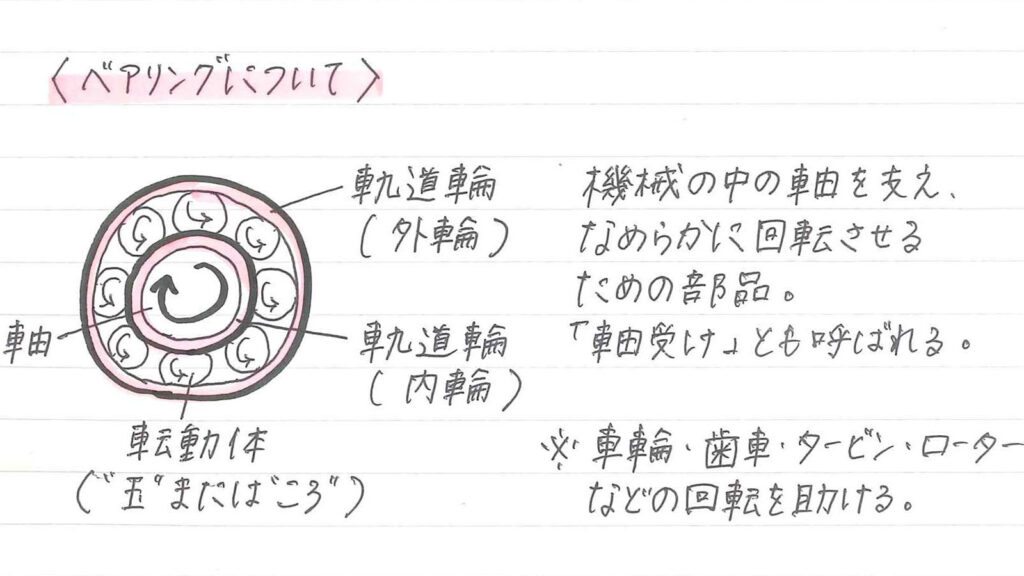 〈ベアリングについて〉
軌道輪
(外輪)
軸
軌道輪
(内輪)
転動体
("玉"または"ころ")
機械の中の軸を支え、
なめらかに回転させる
ための部品。
「軸受け」とも呼ばれる。
※車輪・歯車・タービン・ローター
などの回転を助ける。